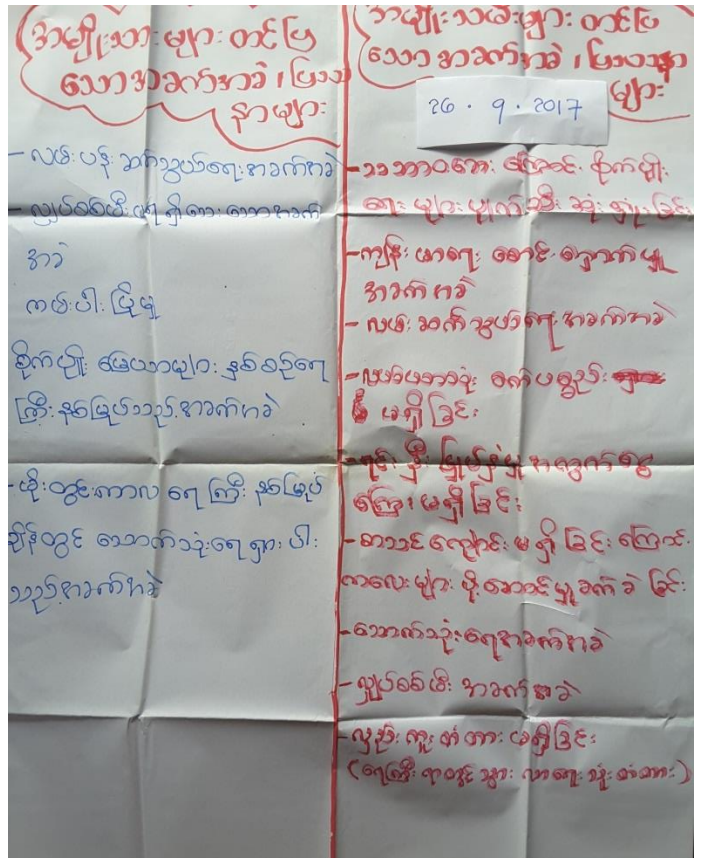 အမျိုးသားများ တင်ပြ
သော အခက်အခဲ၊ ပြဿ
နာများ
- လမ်းပန်းဆက်သွယ်ရေးအခက်အခဲ
- လျှပ်စစ်မီးမရှိသောအခက်
အခဲ
ကမ်းပါးပြိုမှု
စိုက်ပျိုးမြေယာများ နှစ်စဉ်ရေ
ကြီးနစ်မြုပ်သည့်အခက်အခဲ
- မိုးတွင်းကာလ ရေကြီးနစ်မြုပ်
ချိန်တွင် သောက်သုံးရေရှားပါး
သည့်အခက်အခဲ
အမျိုးသမီးများ တင်ပြ
သော အခက်အခဲ၊ ပြဿနာ
များ
26 . 9 . 2017
- သဘာဝဘေးကြောင့် စိုက်ပျိုး
ရေးများပျက်စီးဆုံးရှုံးခြင်း
- ကျန်းမာရေးစောင့်ရှောက်မှု
အခက်အခဲ
- လမ်းဆက်သွယ်ရေးအခက်အခဲ
- လယ်ယာသုံး စက်ပစ္စည်း
မရှိခြင်း
- ရင်းနှီးမြှုပ်နှံမှုအတွက်ငွေ
ကြေးမရှိခြင်း
- စာသင်ကျောင်းမရှိခြင်းကြောင့်
ကလေးများပို့ဆောင်မှုခက်ခဲခြင်း
- သောက်သုံးရေအခက်အခဲ
- လျှပ်စစ်မီးအခက်အခဲ
- လှည်းကူးတံတားမရှိခြင်း
(ရေကြီးရာတွင်သွားလာရေးသုံးတံတား)